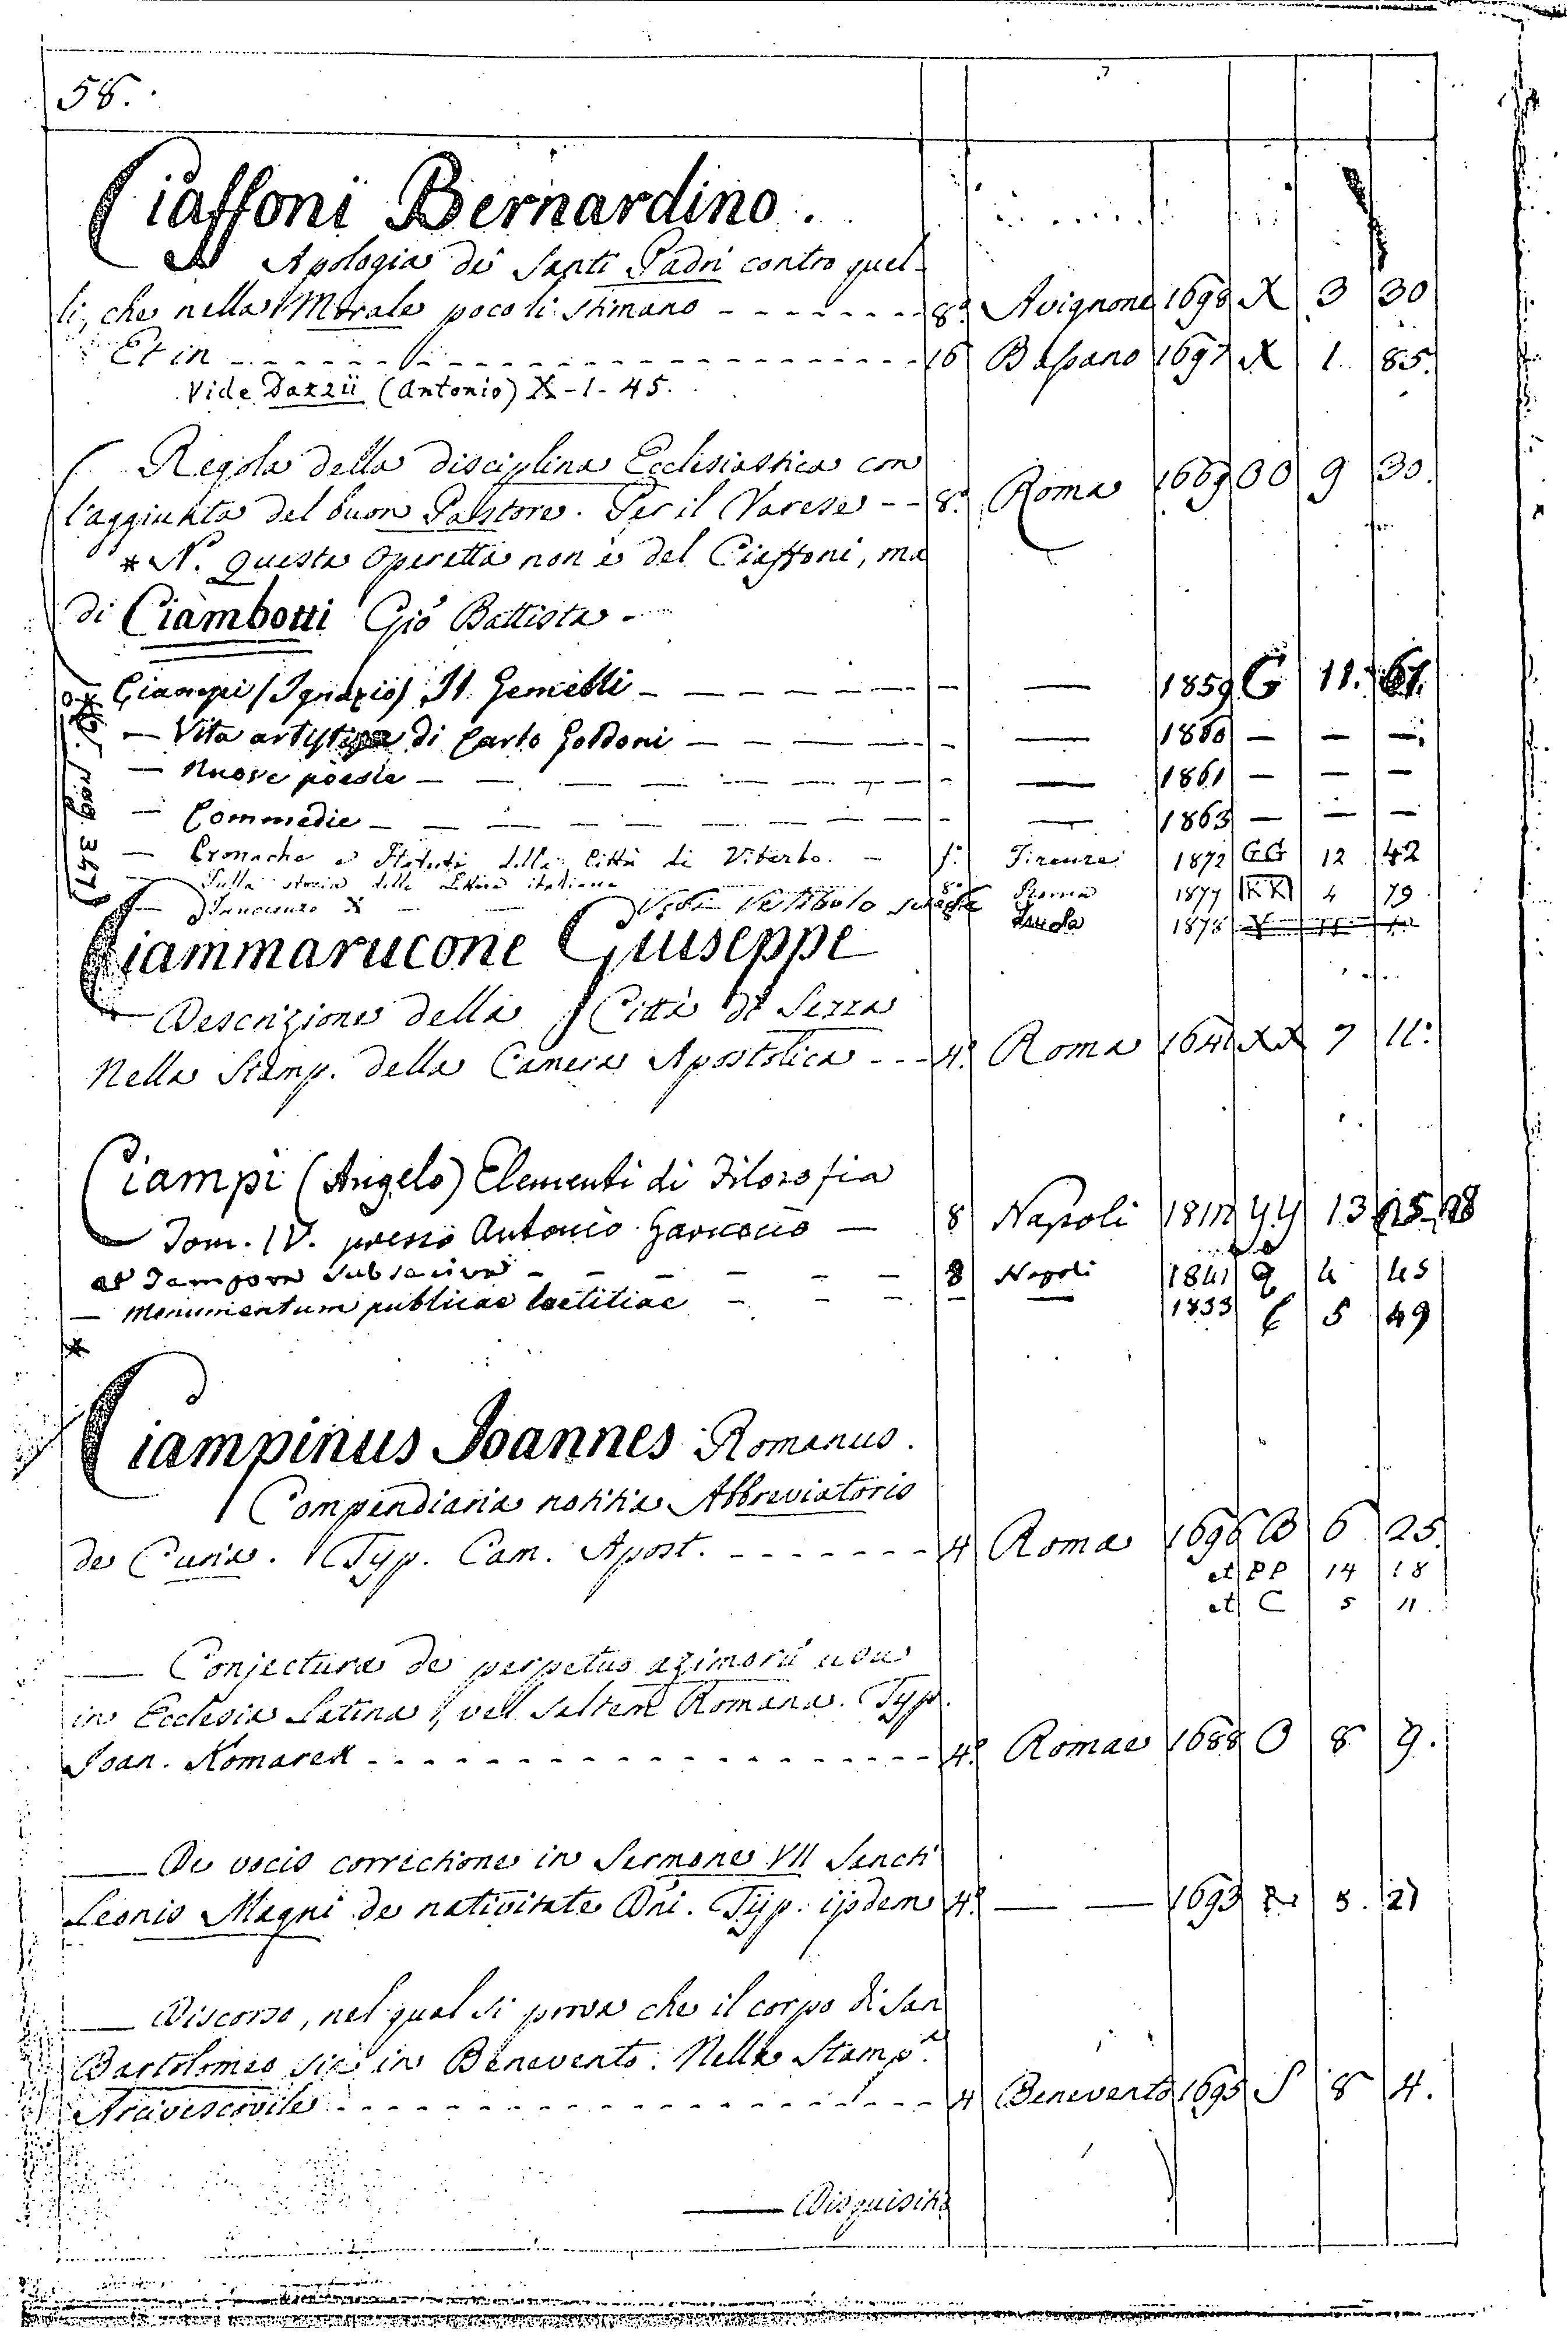 58.
Ciaffoni Bernardino.
Apologia de Santi Padri contro quel-
li, che nella Morale poco li stimano - - - - - - - 8.º Avignone 1698 X 3 30
Et in - - - - - - - - - - - - - - - - 16 Bassano 1697 X 1. 85.
Vide Dazzii (Antonio) X-1-45.
Regola della disciplina Ecclesiastica con
l'aggiunta del buon Pastore. Per il Varese - - 8.º Roma 1669 OO 9 30.
* N. Questa Operetta non è del Ciaffoni, ma
di Ciambotti Gio Battista -
Ciampi (Ignazio) Il Gemelli - — — — — — — — 1859 G 11. 67.
— Vita artistica di Carlo Goldoni — — — — — — — 1860 — — —
— Nuove poesie — — — — — — — — 1861 — — —
— Commedie — — — — — — — — 1863 — — —
— Cronache e Statuti della Città di Viterbo. — f.º Firenze 1872 GG 12 42
— Sulla storia delle Lettere italiane 8º Roma 1877 KK 4 79
— Innocenzo X — — Vedi Vestibolo Imola 1878
pag. 347
Ciammarucone Giuseppe
— Descrizione della Città di Sezza
Nella Stamp. della Camera Apostolica - - - 4.º Roma 1641 XX 7 11.
Ciampi (Angelo) Elementi di Filosofia
Tom. IV. presso Antonio Garruccio — 8 Napoli 1812 YY 13 25-28
et Tempora subseciva - - - - - - 8 Napoli 1841 9 4 45
— Monumentum publicae laetitiae - - - - — — 1833 C 5 49
*
Ciampinus Joannes Romanus.
Compendiaria notitia Abbreviatoris
de Curia. Typ. Cam. Apost. - - - - - - - 4 Roma 1696 B 6 25.
et PP 14 18
et C 5 11.
— Conjectura de perpetuo azimorū usu
in Ecclesia Latina, vel saltem Romana. Typ.
Joan. Komarek - - - - - - - - - - - - 4.º Romae 1688 O 8 9.
— De vocis correctione in Sermone VII Sancti
Leonis Magni de nativitate Dñi. Typ. ijsdem 4.º — — 1693 5. 21
— Discorso, nel qual si prova che il corpo di San
Bartolomeo sia in Benevento. Nella Stamp.ª
Arcivescovile - - - - - - - - - - - - 4 Benevento 1695 S 8 4.
— Disquisitio